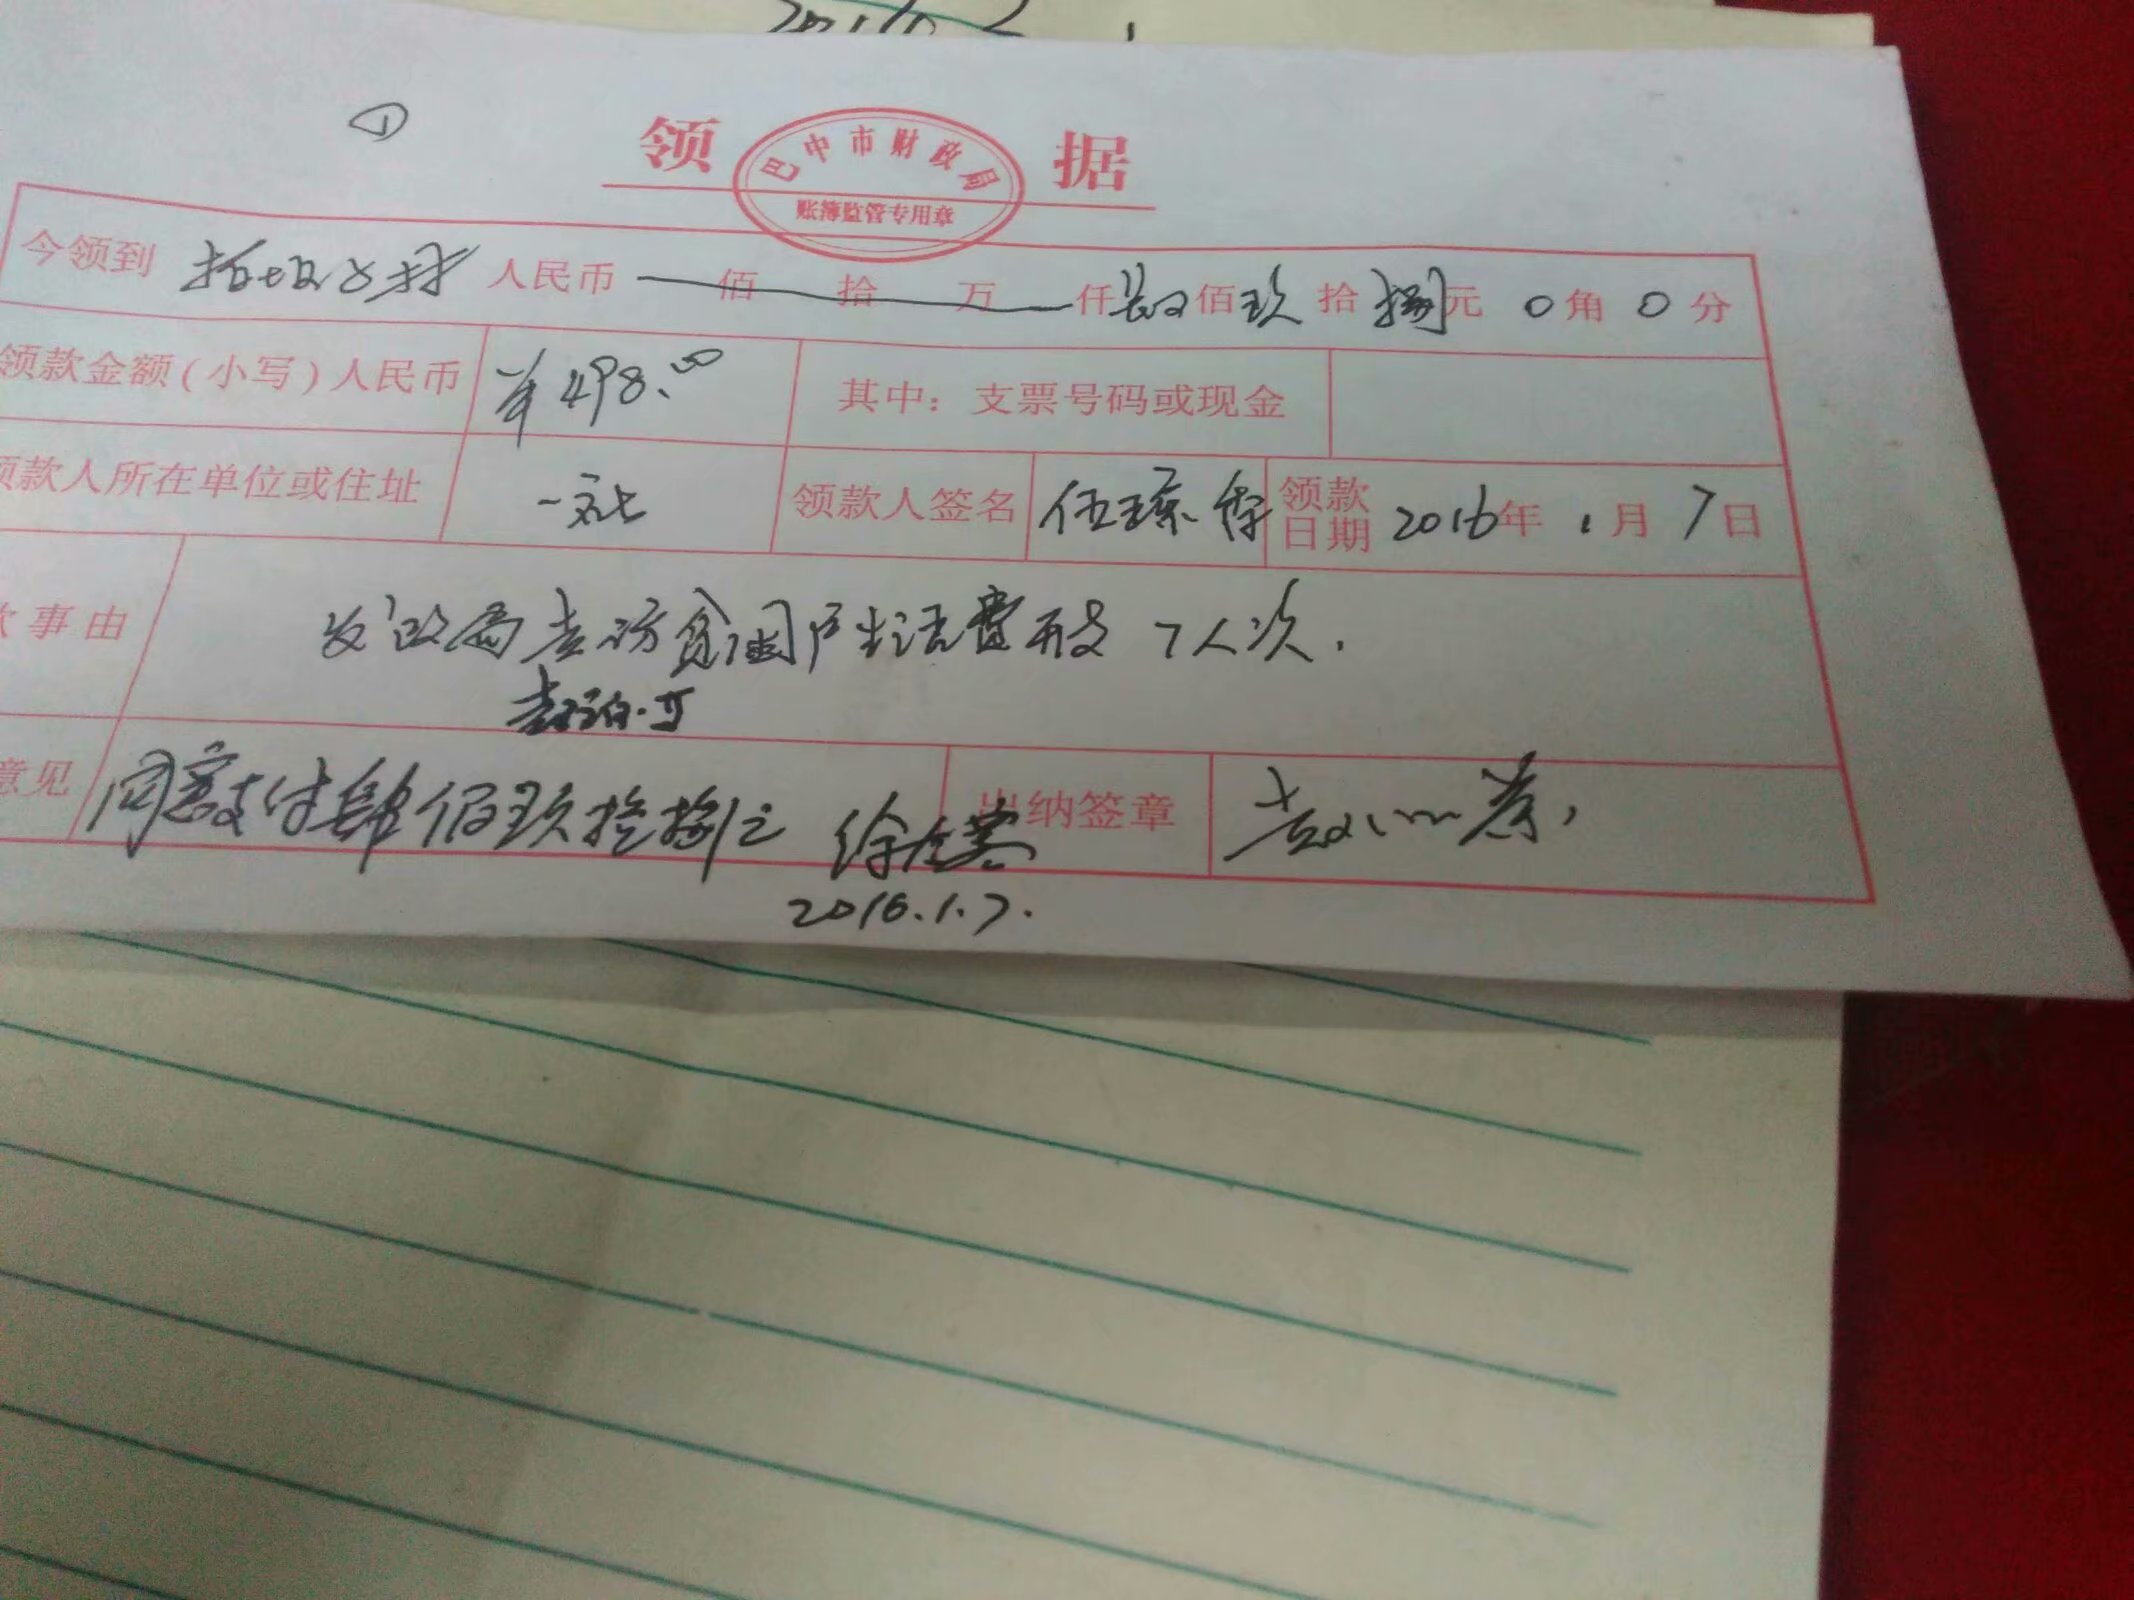 ①
领 据
巴中市财政局
账簿监管专用章
今领到 柏垭子村 人民币 佰 拾 万 仟 肆 佰 玖 拾 捌 元 0 角 0 分
领款金额(小写)人民币 ¥498.00 其中：支票号码或现金
领款人所在单位或住址 一社 领款人签名 伍琼 领款日期 2016年 1月 7日
事由 发改局走访贫困户生活费开支 7人次.
意见 同意支付肆佰玖拾捌元 徐 出纳签章
2016.1.7.